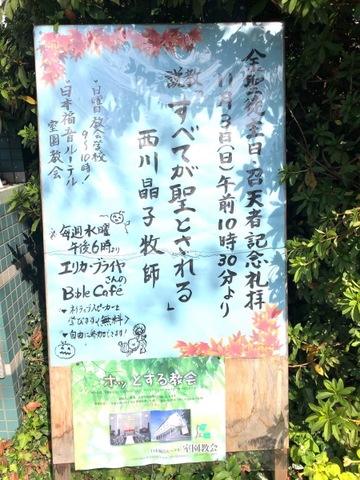 全聖徒主日・召天者記念礼拝
11月3日(日)午前10時30分より
説教「すべてが聖とされる」
西川晶子牧師
♦日曜教会学校
9〜10時！
♦日本福音ルーテル
室園教会
毎週水曜
午後6時より
エリカ・ブライヤ
さんの
Bible Café
♦ネイティブスピーカーと
学びます！〈無料〉
♦自由に参加できます！
ホッとする教会
室園教会